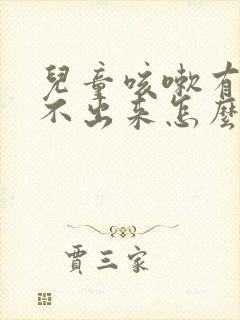 兒童咳嗽有
不出来怎麼
賈三家